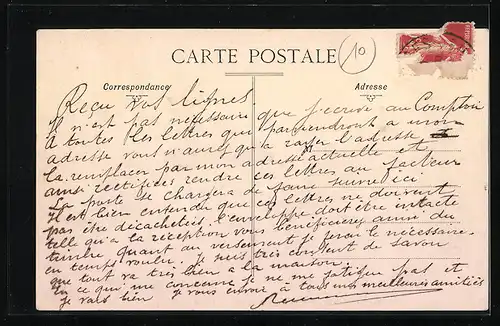 CARTE POSTALE
10
Correspondance
Adresse
Reçu vos lignes
Il n'est pas nécessaire que j'écrive au Comptoir
A toutes les lettres qui parviendront à mon
adresse vous n'aurez qu'à rayer l'adresse
la remplacer par mon adresse actuelle et,
ainsi rectifiées rendre ces lettres au facteur
La poste se chargera de faire suivre ici.
Il est bien entendu que ces lettres ne doivent
pas être décachetées, l'enveloppe doit être intacte
telle qu'à la réception vous bénéficierez ainsi du
timbre quant au versement je ferai le nécessaire
en temps voulu. Je suis très content de savoir
que tout va très bien à la maison.
En ce qui me concerne je ne me fatigue pas et
je vais bien je vous envoie à tous mes meilleures amitiés